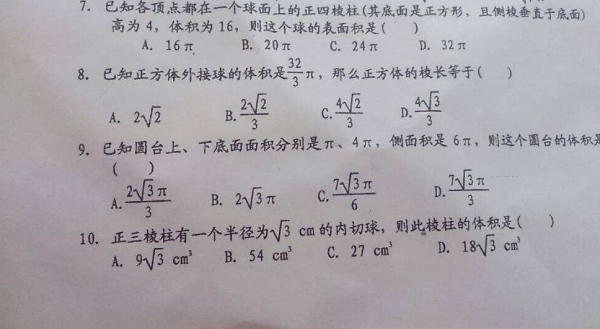 7. 已知各顶点都在一个球面上的正四棱柱(其底面是正方形，且侧棱垂直于底面)
高为4，体积为16，则这个球的表面积是( )
A. 16π B. 20π C. 24π D. 32π
8. 已知正方体外接球的体积是32/3π，那么正方体的棱长等于( )
A. 2√2 B. 2√2/3 C. 4√2/3 D. 4√3/3
9. 已知圆台上、下底面面积分别是π、4π，侧面积是6π，则这个圆台的体积是
( )
A. 2√3π/3 B. 2√3π C. 7√3π/6 D. 7√3π/3
10. 正三棱柱有一个半径为√3 cm的内切球，则此棱柱的体积是( )
A. 9√3 cm³ B. 54 cm³ C. 27 cm³ D. 18√3 cm³